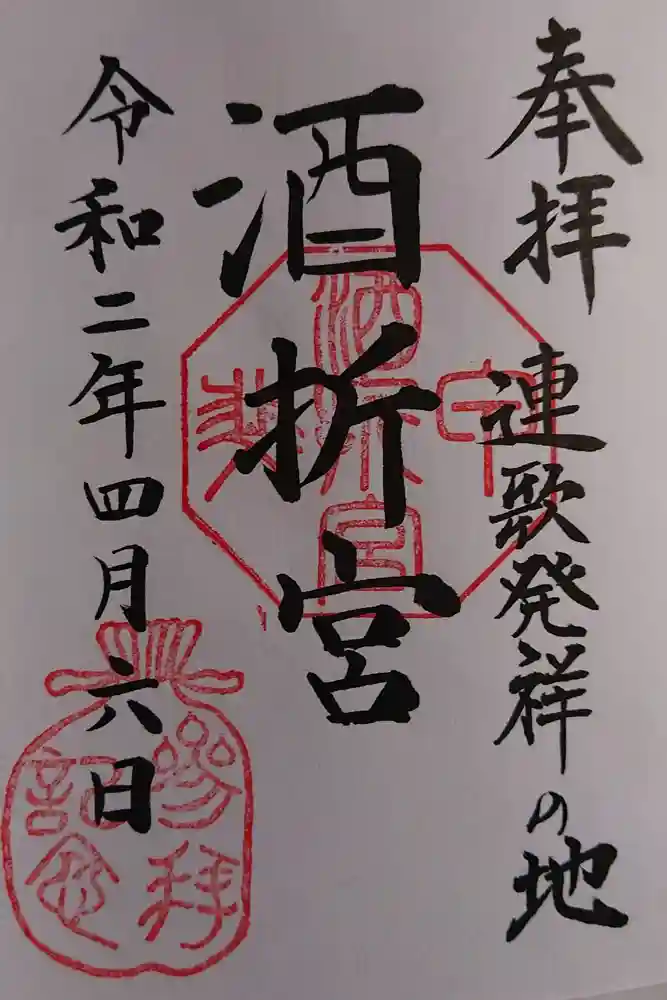 奉拝 連歌発祥の地
酒折宮
令和二年四月六日
参拝
記念